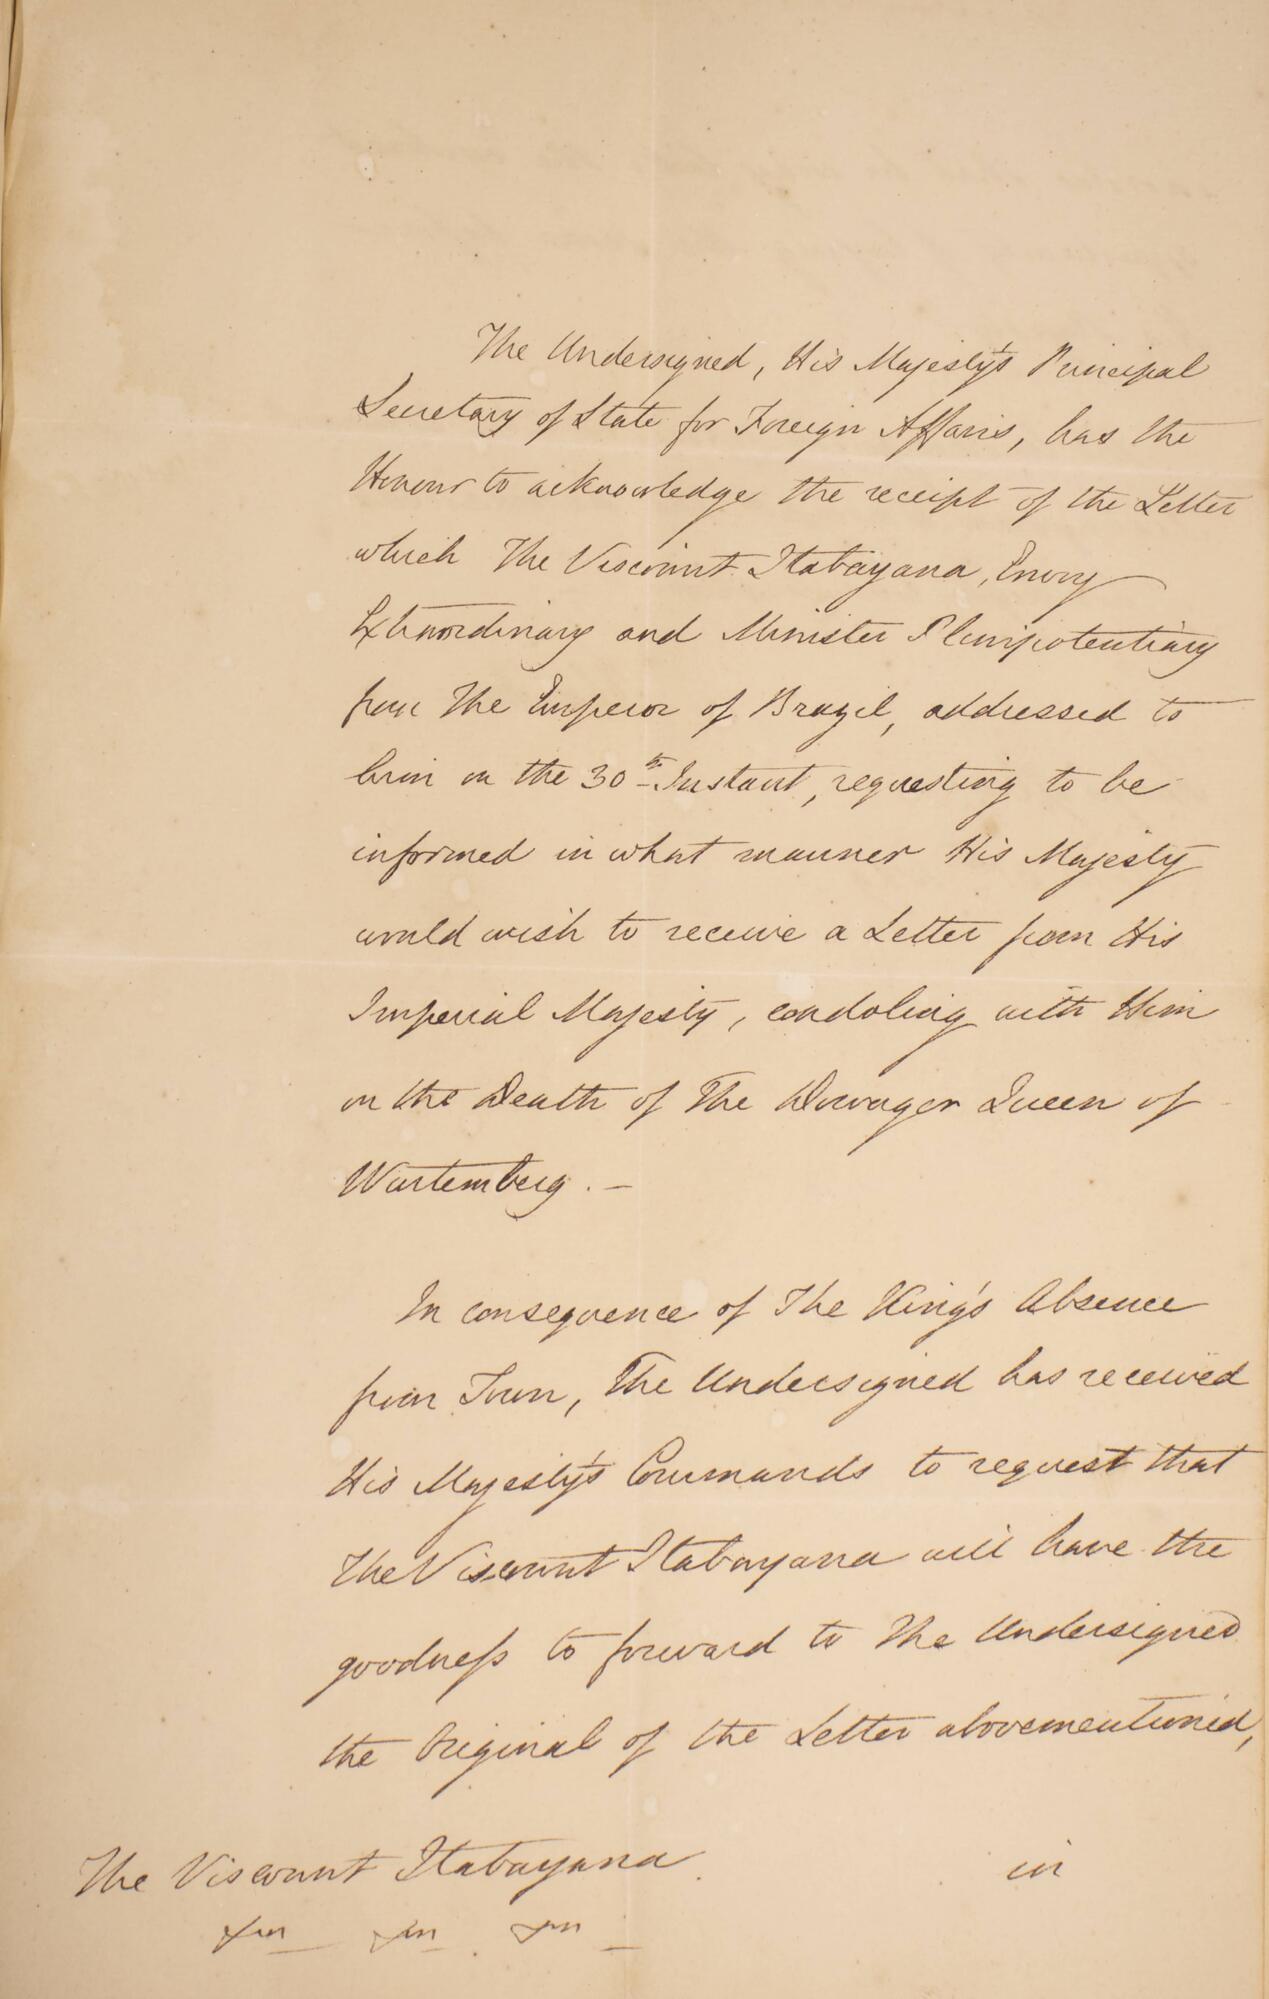 The Undersigned, His Majesty's Principal
Secretary of State for Foreign Affairs, has the
Honour to acknowledge the receipt of the Letter
which The Viscount Itabayana, Envoy
Extraordinary and Minister Plenipotentiary
from The Emperor of Brazil, addressed to
him on the 30th Instant, requesting to be
informed in what manner His Majesty
would wish to receive a Letter from His
Imperial Majesty, condoling with Him
on the Death of The Dowager Queen of
Wurtemberg. —
In consequence of The King's Absence
from Town, The Undersigned has received
His Majesty's Commands to request that
The Viscount Itabayana will have the
goodness to forward to The Undersigned
the Original of the Letter abovementioned,
The Viscount Itabayana
in